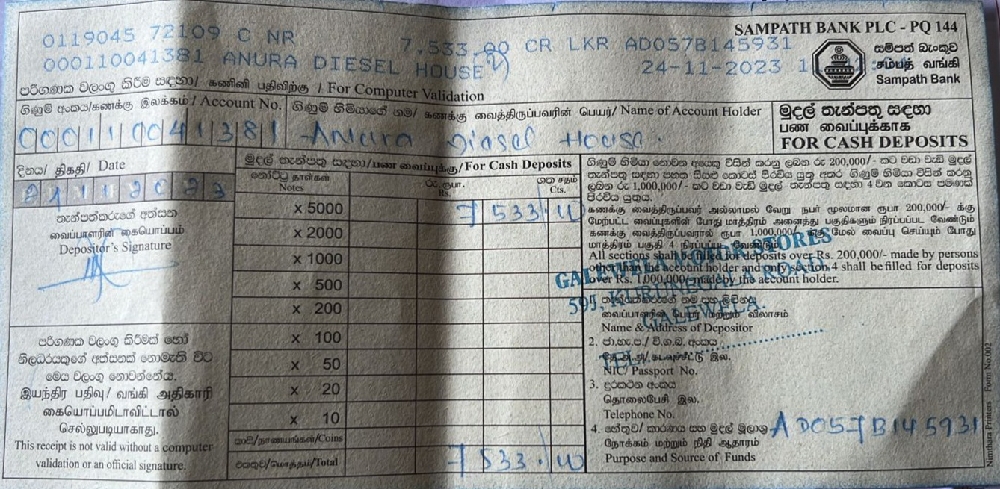 SAMPATH BANK PLC - PQ 144
0119045 72109 C NR 7,533.00 CR LKR AD057B145931
000110041381 ANURA DIESEL HOUSE 24-11-2023
සම්පත් බැංකුව
சம்பத் வங்கி
Sampath Bank
පරිගණක වලංගු කිරීම සඳහා / கணினி பதிவிற்கு / For Computer Validation
ගිණුම් අංකය/கணக்கு இலக்கம் / Account No.
ගිණුම් හිමියාගේ නම/ கணக்கு வைத்திருப்பவரின் பெயர்/ Name of Account Holder
000110041381 Anura Diesel House.
මුදල් තැන්පතු සඳහා
பண வைப்புக்காக
FOR CASH DEPOSITS
දිනය/ திகதி/ Date
24112023
තැන්පත්කරුගේ අත්සන
வைப்பாளரின் கையொப்பம்
Depositor's Signature
මුදල් තැන්පතු සඳහා/பண வைப்புக்கு/For Cash Deposits
නෝට්ටු தாள்கள்
Notes
රු. ரூபா.
Rs.
ශත சதம்
Cts.
x 5000 7533.00
x 2000
x 1000
x 500
x 200
x 100
x 50
x 20
x 10
කාසි/நாணயங்கள்/Coins
එකතුව/மொத்தம்/Total 7533.00
ගිණුම් හිමියා නොවන අයෙකු විසින් කරනු ලබන රු 200,000/- කට වඩා වැඩි මුදල්
තැන්පතු සඳහා පහත සියළු කොටස් පිරවිය යුතු අතර ගිණුම් හිමියා විසින් කරනු
ලබන රු 1,000,000/- කට වඩා වැඩි මුදල් තැන්පතු සඳහා 4 වන කොටස පමණක්
පිරවිය යුතුය.
கணக்கு வைத்திருப்பவர் அல்லாமல் வேறு நபர் மூலமான ரூபா 200,000/- க்கு
மேற்பட்ட வைப்புகளின் போது அனைத்து பகுதிகளும் நிரப்பப்பட வேண்டும்
கணக்கு வைத்திருப்பவரால் ரூபா 1,000,000/- மேல் வைப்பு செய்யும் போது
மாத்திரம் பகுதி 4 நிரப்பப்பட வேண்டும்
All sections shall be filled for deposits over Rs. 200,000/- made by persons
other than the account holder and only section 4 shall be filled for deposits
over Rs. 1,000,000/- made by the account holder.
GALEWELA MOTOR STORES
KURUNEGALA ROAD,
GALEWELA.
TEL:
Name & Address of Depositor
2. ජා.හැ.ප./ වි.ග.බ. අංකය
NIC/ Passport No.
3. දුරකථන අංකය
தொலைபேசி இல.
Telephone No.
4. හේතුව/ කාරණය සහ මුදල් මූලාශ්‍ර AD057B145931
நோக்கம் மற்றும் நிதி ஆதாரம்
Purpose and Source of Funds
පරිගණක වලංගු කිරීමක් හෝ
නිලධරයකුගේ අත්සනක් නොමැති විට
මෙය වලංගු නොවන්නේය.
இயந்திர பதிவு/ வங்கி அதிகாரி
கையொப்பமிடாவிட்டால்
செல்லுபடியாகாது.
This receipt is not valid without a computer
validation or an official signature.
Form No.002